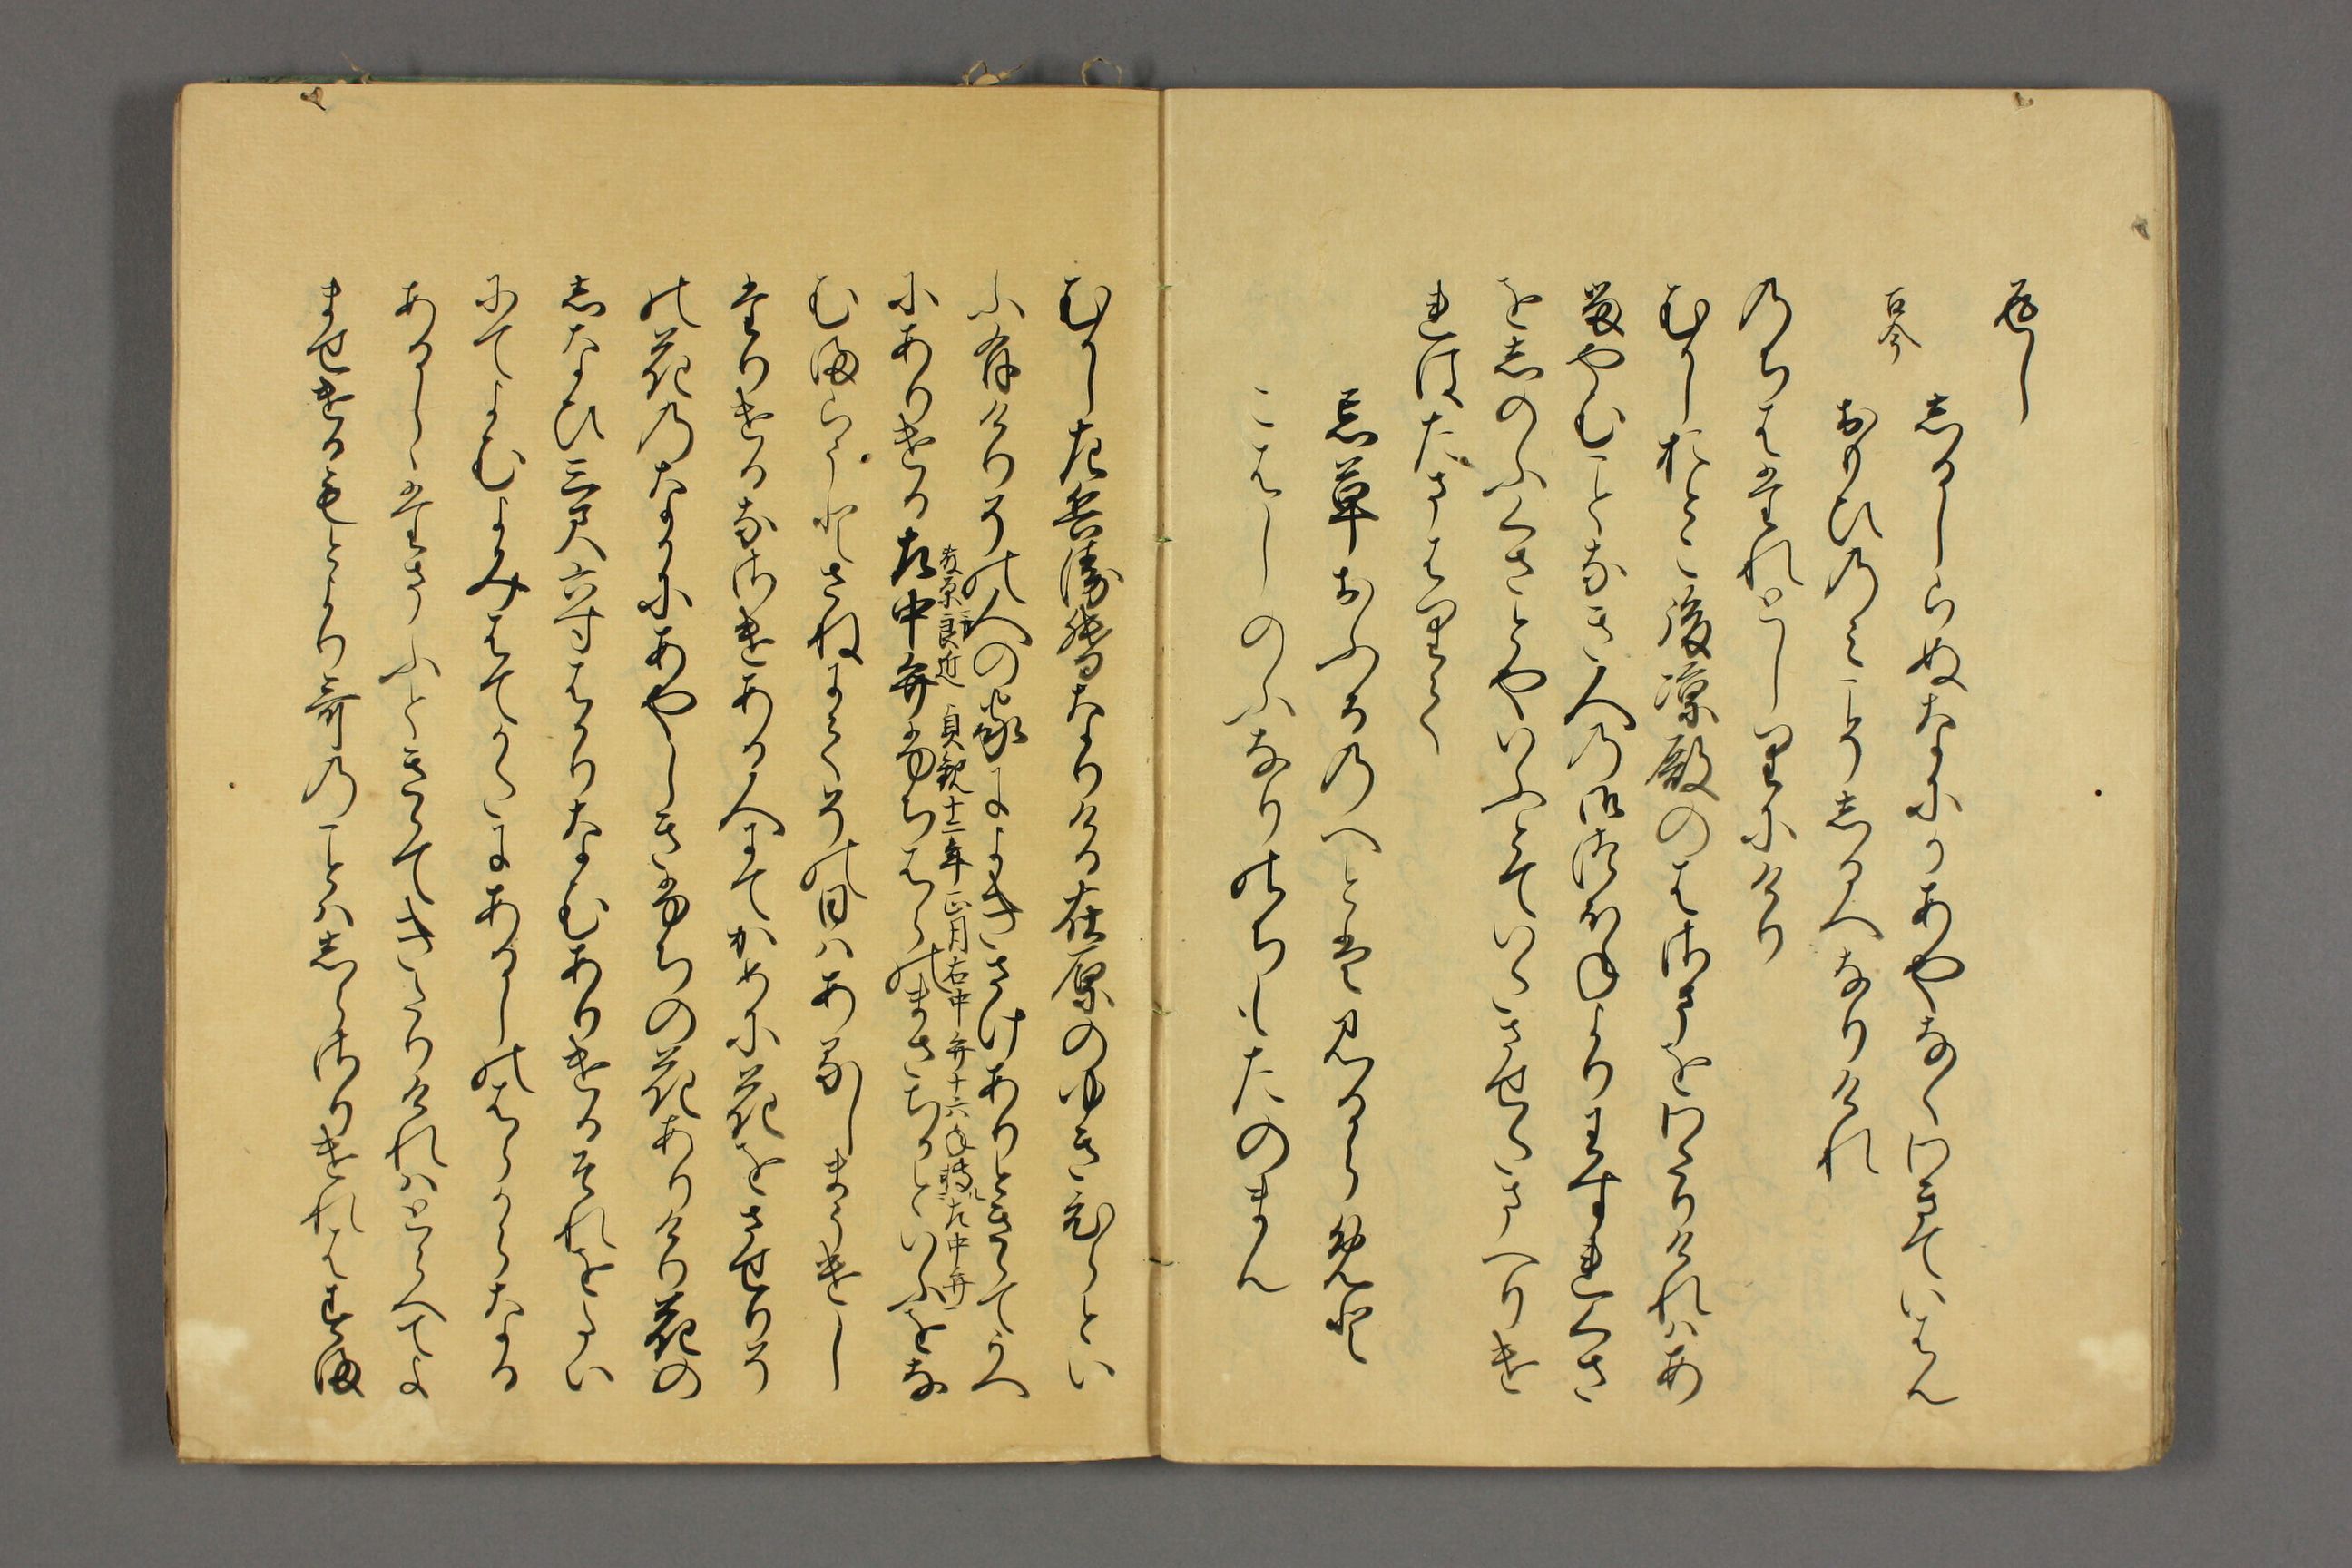 返し
しるしらぬなにかあやなくわきていはん
古今
おもひのみこそしるへなりけれ
のちはたれとしりにけり
むかしおとこ後凉殿のはさまをわたりけれはあ
るやむことなき人の御つほねよりわすれくさ
をしのふくさとやいふとていたさせたまへりけ
れはたまはりて
忘草おふるのへとは見るらめと
こはしのふなりのちもたのまん
むかし左兵衛督なりける在原のゆきひらとい
ふ有けりその人の家によきさけありときゝてうへ
藤原良近 貞観十二年正月右中弁十六年転左中弁
にありける左中弁ふちはらのまさちかといふをな
むまらうとさねにてその日はあるしまうけし
たりけるなさけある人にてかめに花をさせりそ
の花のなかにあやしきふちの花ありけり花の
しなひ三尺六寸はかりなむありけるそれをたい
にてよむよみはてかたにあるしのはらからなる
あるしゝたまふときゝてきたりけれはとらへてよ
ませけるもとより哥のことはしらさりけれはすま